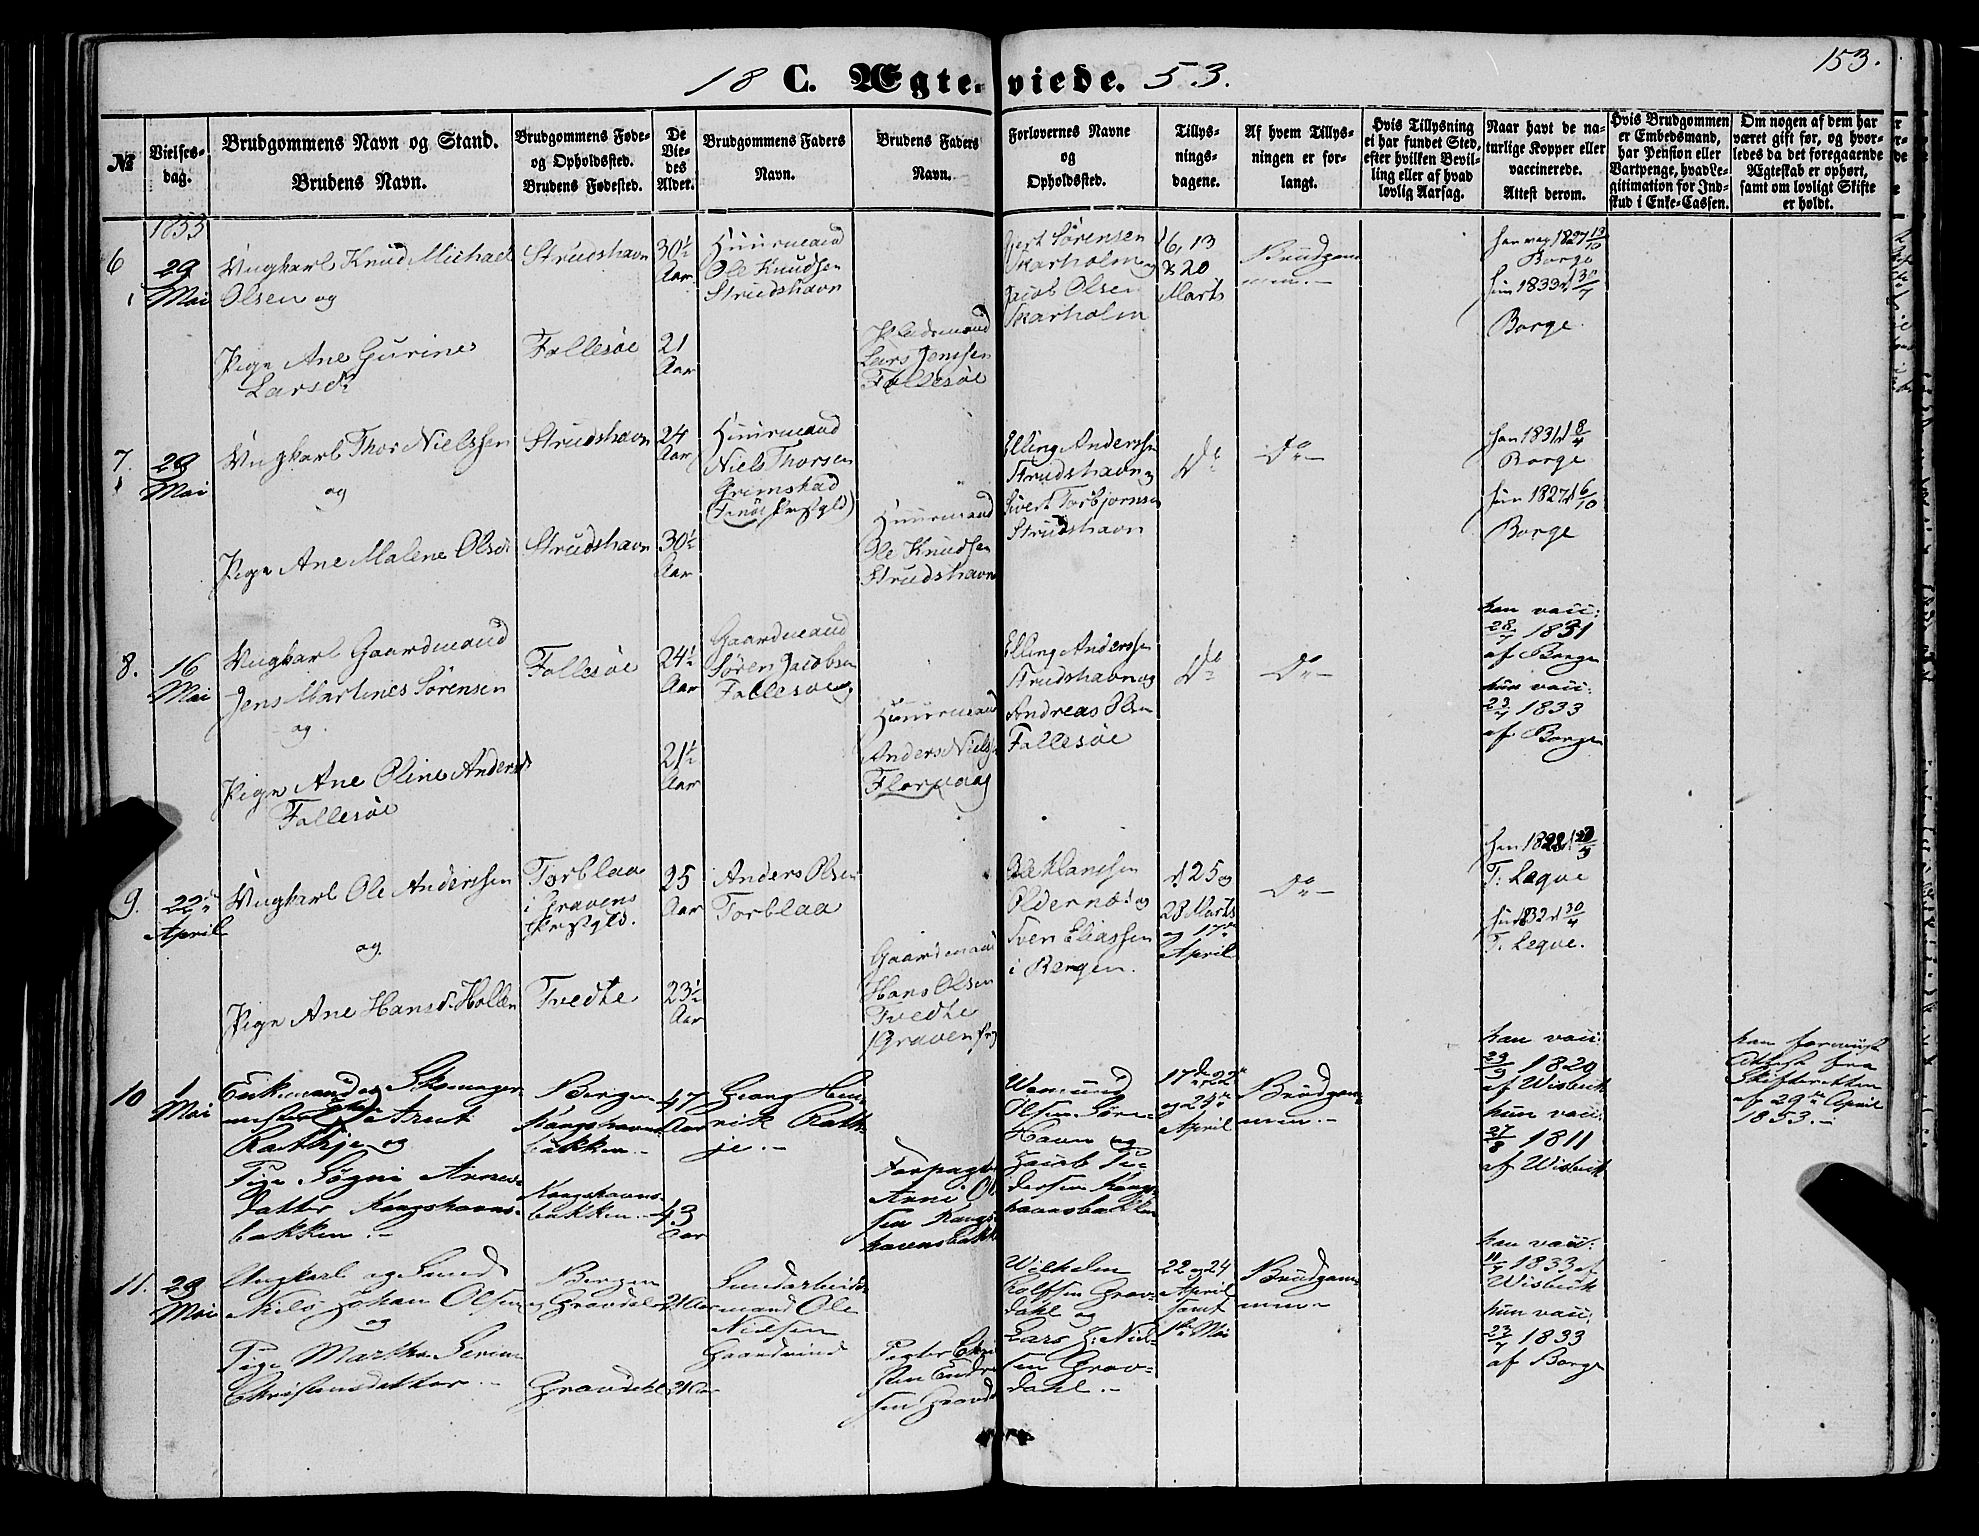 153.
18 C. Ægte-viede. 53.
№
Vielses-
dag.
Brudgommens Navn og Stand.
Brudens Navn.
Brudgommens Føde-
og Opholdssted.
Brudens Fødested.
De
Vie-
des
Alder.
Brudgommens Faders
Navn.
Brudens Faders
Navn.
Forlovernes Navne
og
Opholdssted.
Tillys-
nings-
dagene.
Af hvem Tillys-
ningen er for-
langt.
Hvis Tillysning
ei har fundet Sted,
efter hvilken Bevil-
ling eller af hvad
lovlig Aarsag.
Naar havt de na-
turlige Kopper eller
vaccinerede.
Attest derom.
Hvis Brudgommen
er Embedsmand,
har Pension eller
Vartpenge, hvad Le-
gitimation for Ind-
skud i Enke-Cassen.
Om nogen af dem har
været gift før, og hvor-
ledes da det foregaaende
Ægteskab er ophørt,
samt om lovligt Skifte
er holdt.
1853
6
29
Mai
Ungkarl Knud Michael
Olsen og
Pige Ane Gurine
Larsdr
Strudshavn
Follesøe
30½
Aar
21
Aar
Huusmand
Ole Knudsen
Strudshavn
Pladsmand
Lars Jenssen
Follesøe
Gert Sørensen
Skarholm og
Jacob Olsen
Skarholm
6, 13
& 20
Marts
Brudgom
men.-
han vac 1827 13/10
Borge
hun 1833 30/7
Borge.
7.
29
Mai
Ungkarl Thor Nielssen
og
Pige Ane Malene Olsdr
Strudshavn
Strudshavn
24
Aar
30½
Aar
Huusmand
Niels Thorsen
Grimstad
Huusmand
Ole Knudsen
Strudshavn
Elling Anderssen
Strudshavn og
Sivert Torbjørnsen
Strudshavn
Do
Do-
han 1831 8/4
Borge
hun 1827 6/10
Borge
8.
16
Mai
Ungkarl Gaardmand
Jens Martines Sørensen
og
Pige Ane Oline Andersdr
Follesøe
Follesøe
24½
Aar
21½
Aar
Gaardmand
Søren Jacobsen
Follesøe og
Huusmand
Anders Nielsen
Florvaag
Elling Anderssen
Strudshavn og
Andreas Olsen
Follesøe
Do
Do-
han vacc:
28/7 1831
af Borge
hun vacc:
23/7 1833
af Borge
9.
22de
April
Ungkarl Ole Anderssen
og
Pige Ane Hansdr Hollen
Torblaa
i Gravens
Præstgld.
Tvedte
25
Aar
23½
Aar
Anders Olsen
Torblaa
Gaardmand
Hans Olsen
Tvedte
Ole Hanssen
Oldernæs og
Sven Eliassen
i Bergen.
25 og
28 Marts
og 17de
April
Do-
T: Leque
hun 1832 30/4
T. Leque.
10
1
Mai
Enkemand og Skomager-
mester Arnt
Rathje og
Pige Søgni Arnes-
datter Kongshavns-
bakken.-
Bergen
Kongshavns-
bakken.-
Kongshavns-
bakken.-
47
Aar
43
Aar
Georg Hen-
rik Rath-
je.-
Forpagter
Arne Ol-
sen Kongs-
havnsbakk
Olsen
Havn og
Jacob Pe-
dersen Kongs-
havnsbakken
17de 22de
og 24de
April
Brudgom-
men.-
han vacc:
29/9 1820
af Wisbech
hun vacc:
27/8 1811
af Wisbech
Attest fra
Skifteretten
af 29de April
1853.-
11.
29
Mai
Ungkarl og
Niels Johan Olsen
og
Pige Martha Serine
Christensdatter.-
Bergen
og Gravdal
Gravdal
21 Aar
21 Aar
mand Ole
Nielsen
Christen
sen Gravd
Wilhelm
Rolfsen Grav-
dahl og
Lars H: Niel-
sen Grav-
dahl.-
22 og 24
April
samt
1ste Mai
Brudgom-
men-
han vacc:
11/7 1833 af
Wisbech
hun vacc:
23/7 1833
af Borge